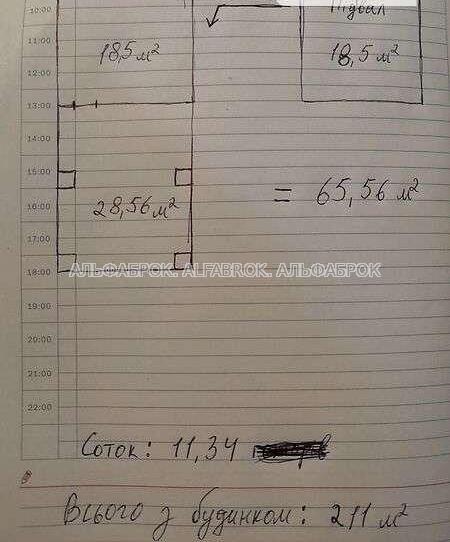 10:00
Підвал
11:00
18,5 м²
18,5 м²
12:00
13:00
15:00
16:00
28,56 м²
= 65,56 м²
17:00
18:00
АЛЬФАБРОК. ALFABROK. АЛЬФАБРОК
19:00
20:00
21:00
22:00
Соток: 11,34
Всього з будинком: 211 м²